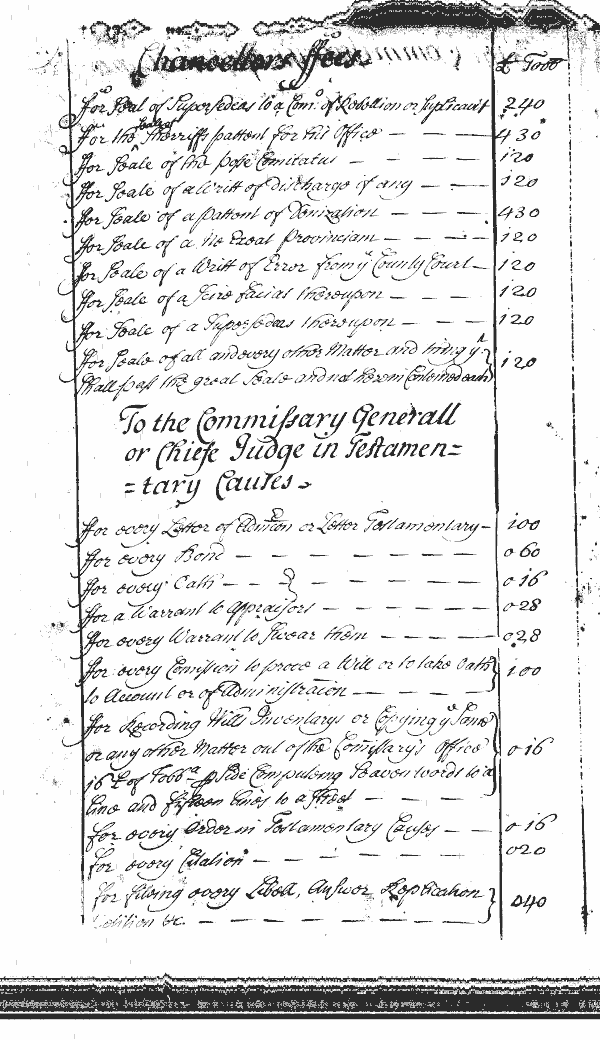 Chancellors ffees £ Tobb
ffor Seal of Supersedeas to a Com: of Rebellion or Suplicavit 240
ffor the Seale of Sherriffs pattent for his Office 430
ffor Seale of the posse Comitatus 120
ffor Seale of a Writt of discharge if any 120
ffor Seale of a pattent of Denization 430
ffor Seale of a Ne Exeat provinciam 120
ffor Seale of a Writt of Error from yᵉ County Court 120
ffor Seale of a Scire facias thereupon 120
ffor Seale of a Supersedeas thereupon 120
ffor Seale of all and every other Matter and thing yᵗ
shall pass the great Seale and not herein Conteined each 120
To the Commissary Generall
or Chiefe Judge in Testamen=
=tary Causes
ffor every Letter of Admon or Letter Testamentary 100
ffor every Bond 060
ffor every Oath 016
ffor a Warrant to Appraisors 028
ffor every Warrant to Swear them 028
ffor every Comission to prove a Will or to take Oath
to Account or of Administracon 100
ffor Recording Wills Inventarys or Copying yᵉ Same
or any other Matter out of the Comissary's Office
16 £ of Tobbᵃ p side Computeing Seaven words to a 016
line and fifteen lines to a sheet
for every Order in Testamentary Causes 016
for every Citation 020
for fileing every Libell, Answer Replication
Petition &c. 040